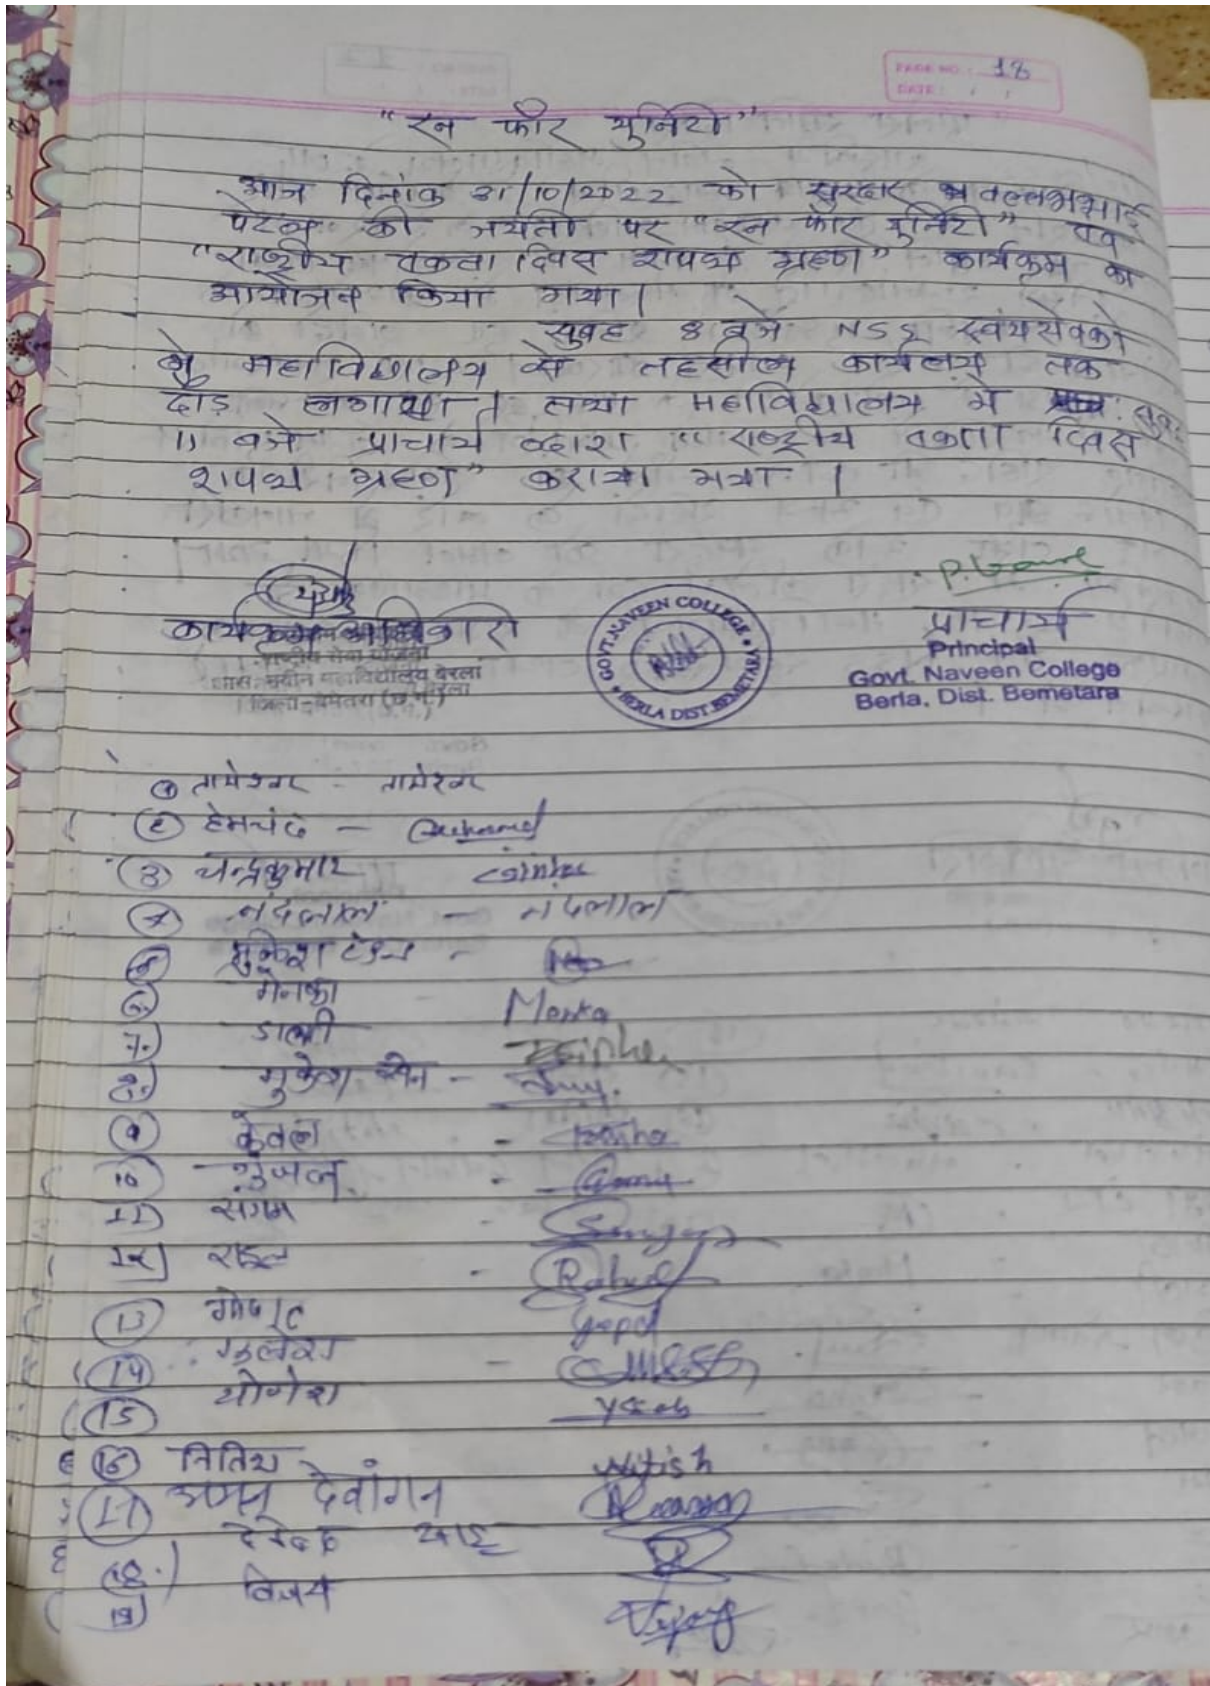 PAGE NO: 18
DATE: / /
"रन फॉर युनिटी"
आज दिनांक 31/10/2022 को सरदार वल्लभभाई
पटेल की जयंती पर "रन फॉर युनिटी" एवं
"राष्ट्रीय एकता दिवस शपथ ग्रहण" कार्यक्रम का
आयोजन किया गया।
सुबह 8 बजे NSS स्वंयसेवको
ने महाविद्यालय से तहसील कार्यलय तक
दौड़ लगाया। तथा महाविद्यालय में
11 बजे प्राचार्य व्दारा "राष्ट्रीय एकता दिवस
शपथ ग्रहण" कराया गया।
कार्यक्रम अधिकारी
राष्ट्रीय सेवा योजना
शास. नवीन महाविद्यालय बेरला
जिला-बेमेतरा (छ.ग.)
GOVT. NAVEEN COLLEGE
BERLA DIST. BEMETARA
प्राचार्य
Principal
Govt. Naveen College
Berla, Dist. Bemetara
① तामेश्वर - तामेश्वर
② हेमचंद -
③ चन्द्रकुमार
④ नंदलाल - नंदलाल
⑤ मुकेश टंडन -
6. मेनका Menka
7.) डाली
8.) मुकेश सेन -
⑨ केवल -
10 -
11) संगम -
12) राहुल - Rahul
13 गोपाल Gopal
14 -
15 योगेश
16 नितिश Nitish
17 देवांगन
18.)
19) विजय Vijay